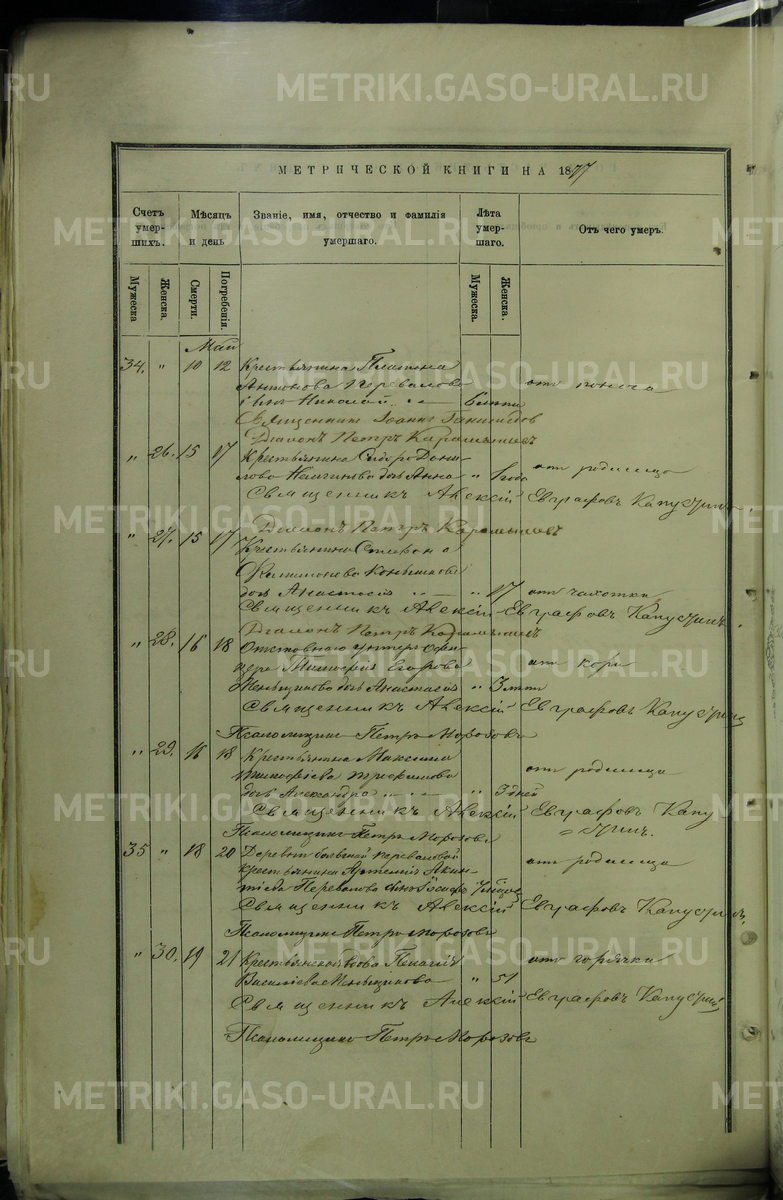 METRIKI.GASO-URAL.RU
МЕТРИЧЕСКОЙ КНИГИ НА 1877
Счетъ умер- шихъ.
Мѣсяцъ и день
Званіе, имя, отчество и фамилія умершаго.
Лѣта умер- шаго.
Отъ чего умеръ.
Мужеска
Женска.
Смерти.
Погребенія.
Мужеска.
Женска.
Май
34. " 10 12 Крестьянина Платона
Антонова Перевалова
сынъ Николай 6
Священникъ Іоаннъ
Діаконъ Петръ Карамышевъ
" 26. 15 17 Крестьянина Сидора Дани-
лова дочь Анна " 1 года отъ родимца
Священникъ Алексій Евграфовъ Капустинъ.
Діаконъ Петръ Карамышевъ
" 27. 15 17 Крестьянина Стефана
Филимонова
дочь Анастасія " 17 отъ чахотки
Священникъ Алексій Евграфовъ Капустинъ.
Діаконъ Петръ Карамышевъ
" 28. 16 18 Отставнаго унтеръ офи-
цера Тимофея Егорова отъ кори
дочь Анастасія " 3 лѣтъ
Священникъ Алексій Евграфовъ Капустинъ
Псаломщикъ Петръ Морозовъ
" 29. 16 18 Крестьянина Максима
Тимофеева отъ родимца
дочь Александра " 3 дней
Священникъ Алексій Евграфовъ Капу
= стинъ.
Псаломщикъ Петръ Морозовъ
35 " 18 20 Деревни большой Переваловой
крестьянина Артемія отъ родимца
Перевалова сынъ Іосифъ
Священникъ Алексій Евграфовъ Капустинъ.
Псаломщикъ Петръ Морозовъ
" 30. 19 21 Крестьянская вдова Пелагія отъ горячки
Василіева " 51
Священникъ Алексій Евграфовъ Капустинъ
Псаломщикъ Петръ Морозовъ